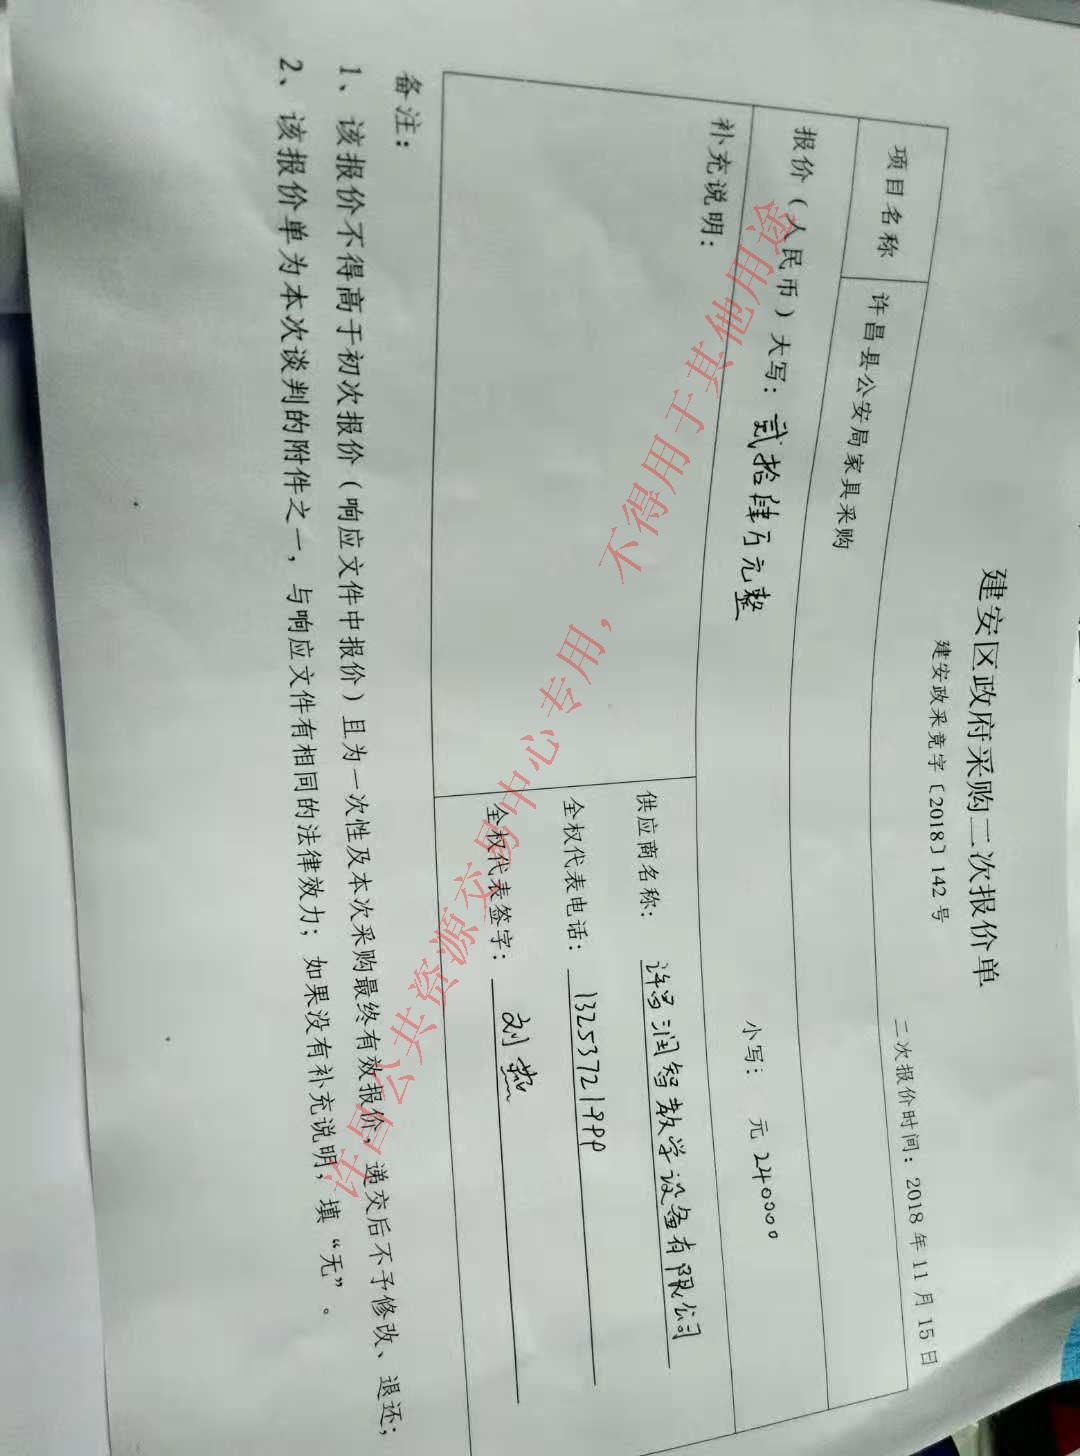 建安区政府采购二次报价单
建安政采竞字〔2018〕142号
二次报价时间：2018年11月15日
项目名称 许昌县公安局家具采购
报价（人民币）大写：贰拾肆万元整 小写： 元 240000
补充说明：
供应商名称： 许昌润智教学设备有限公司
全权代表电话：
全权代表签字： 刘
备注：
1、该报价不得高于初次报价（响应文件中报价）且为一次性及本次采购最终有效报价，递交后不予修改、退还；
2、该报价单为本次谈判的附件之一，与响应文件有相同的法律效力；如果没有补充说明，填“无”。
许昌公共资源交易中心专用，不得用于其他用途